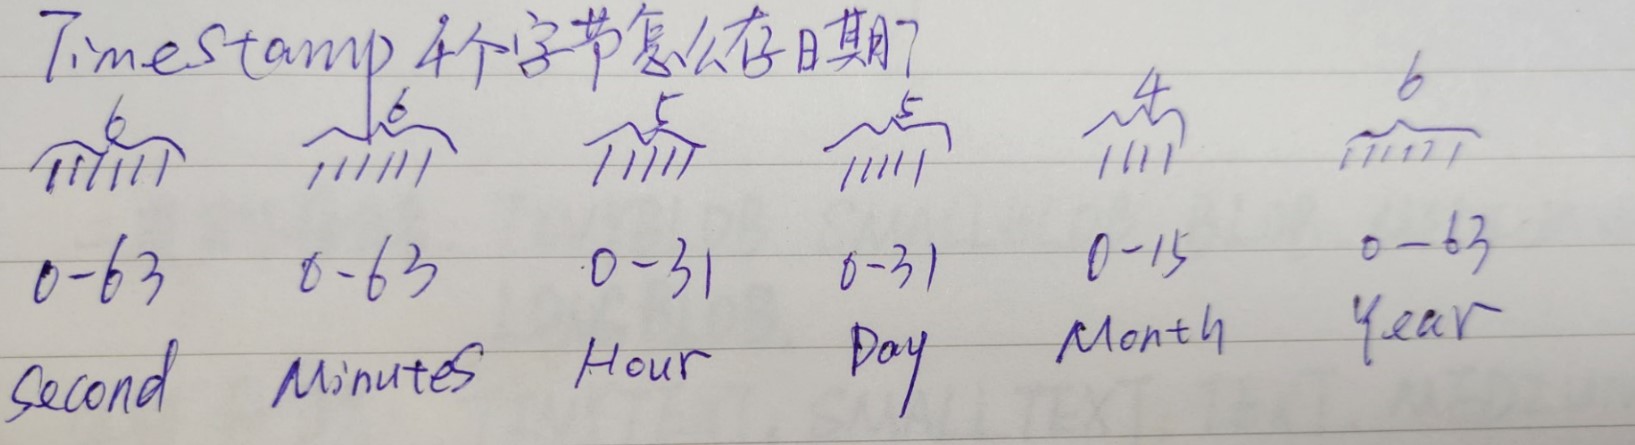 Timestamp 4个字节怎么存日期?
6 6 5 5 4 6
0-63 0-63 0-31 0-31 0-15 0-63
Second Minutes Hour Day Month Year